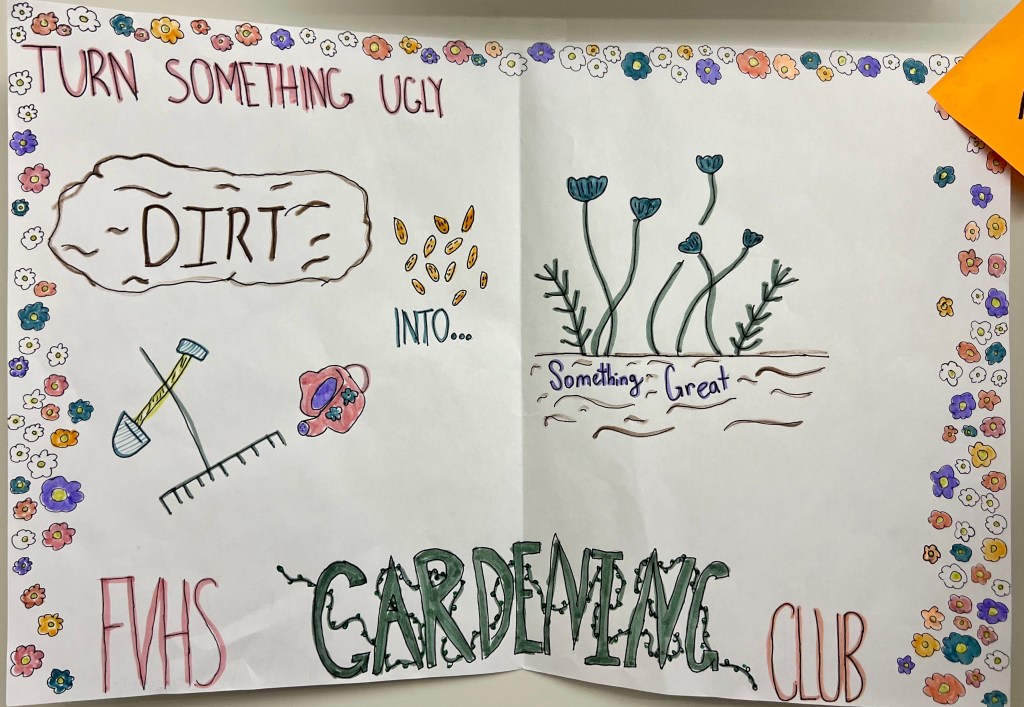 TURN SOMETHING UGLY
DIRT
INTO...
Something Great
FVHS GARDENING CLUB